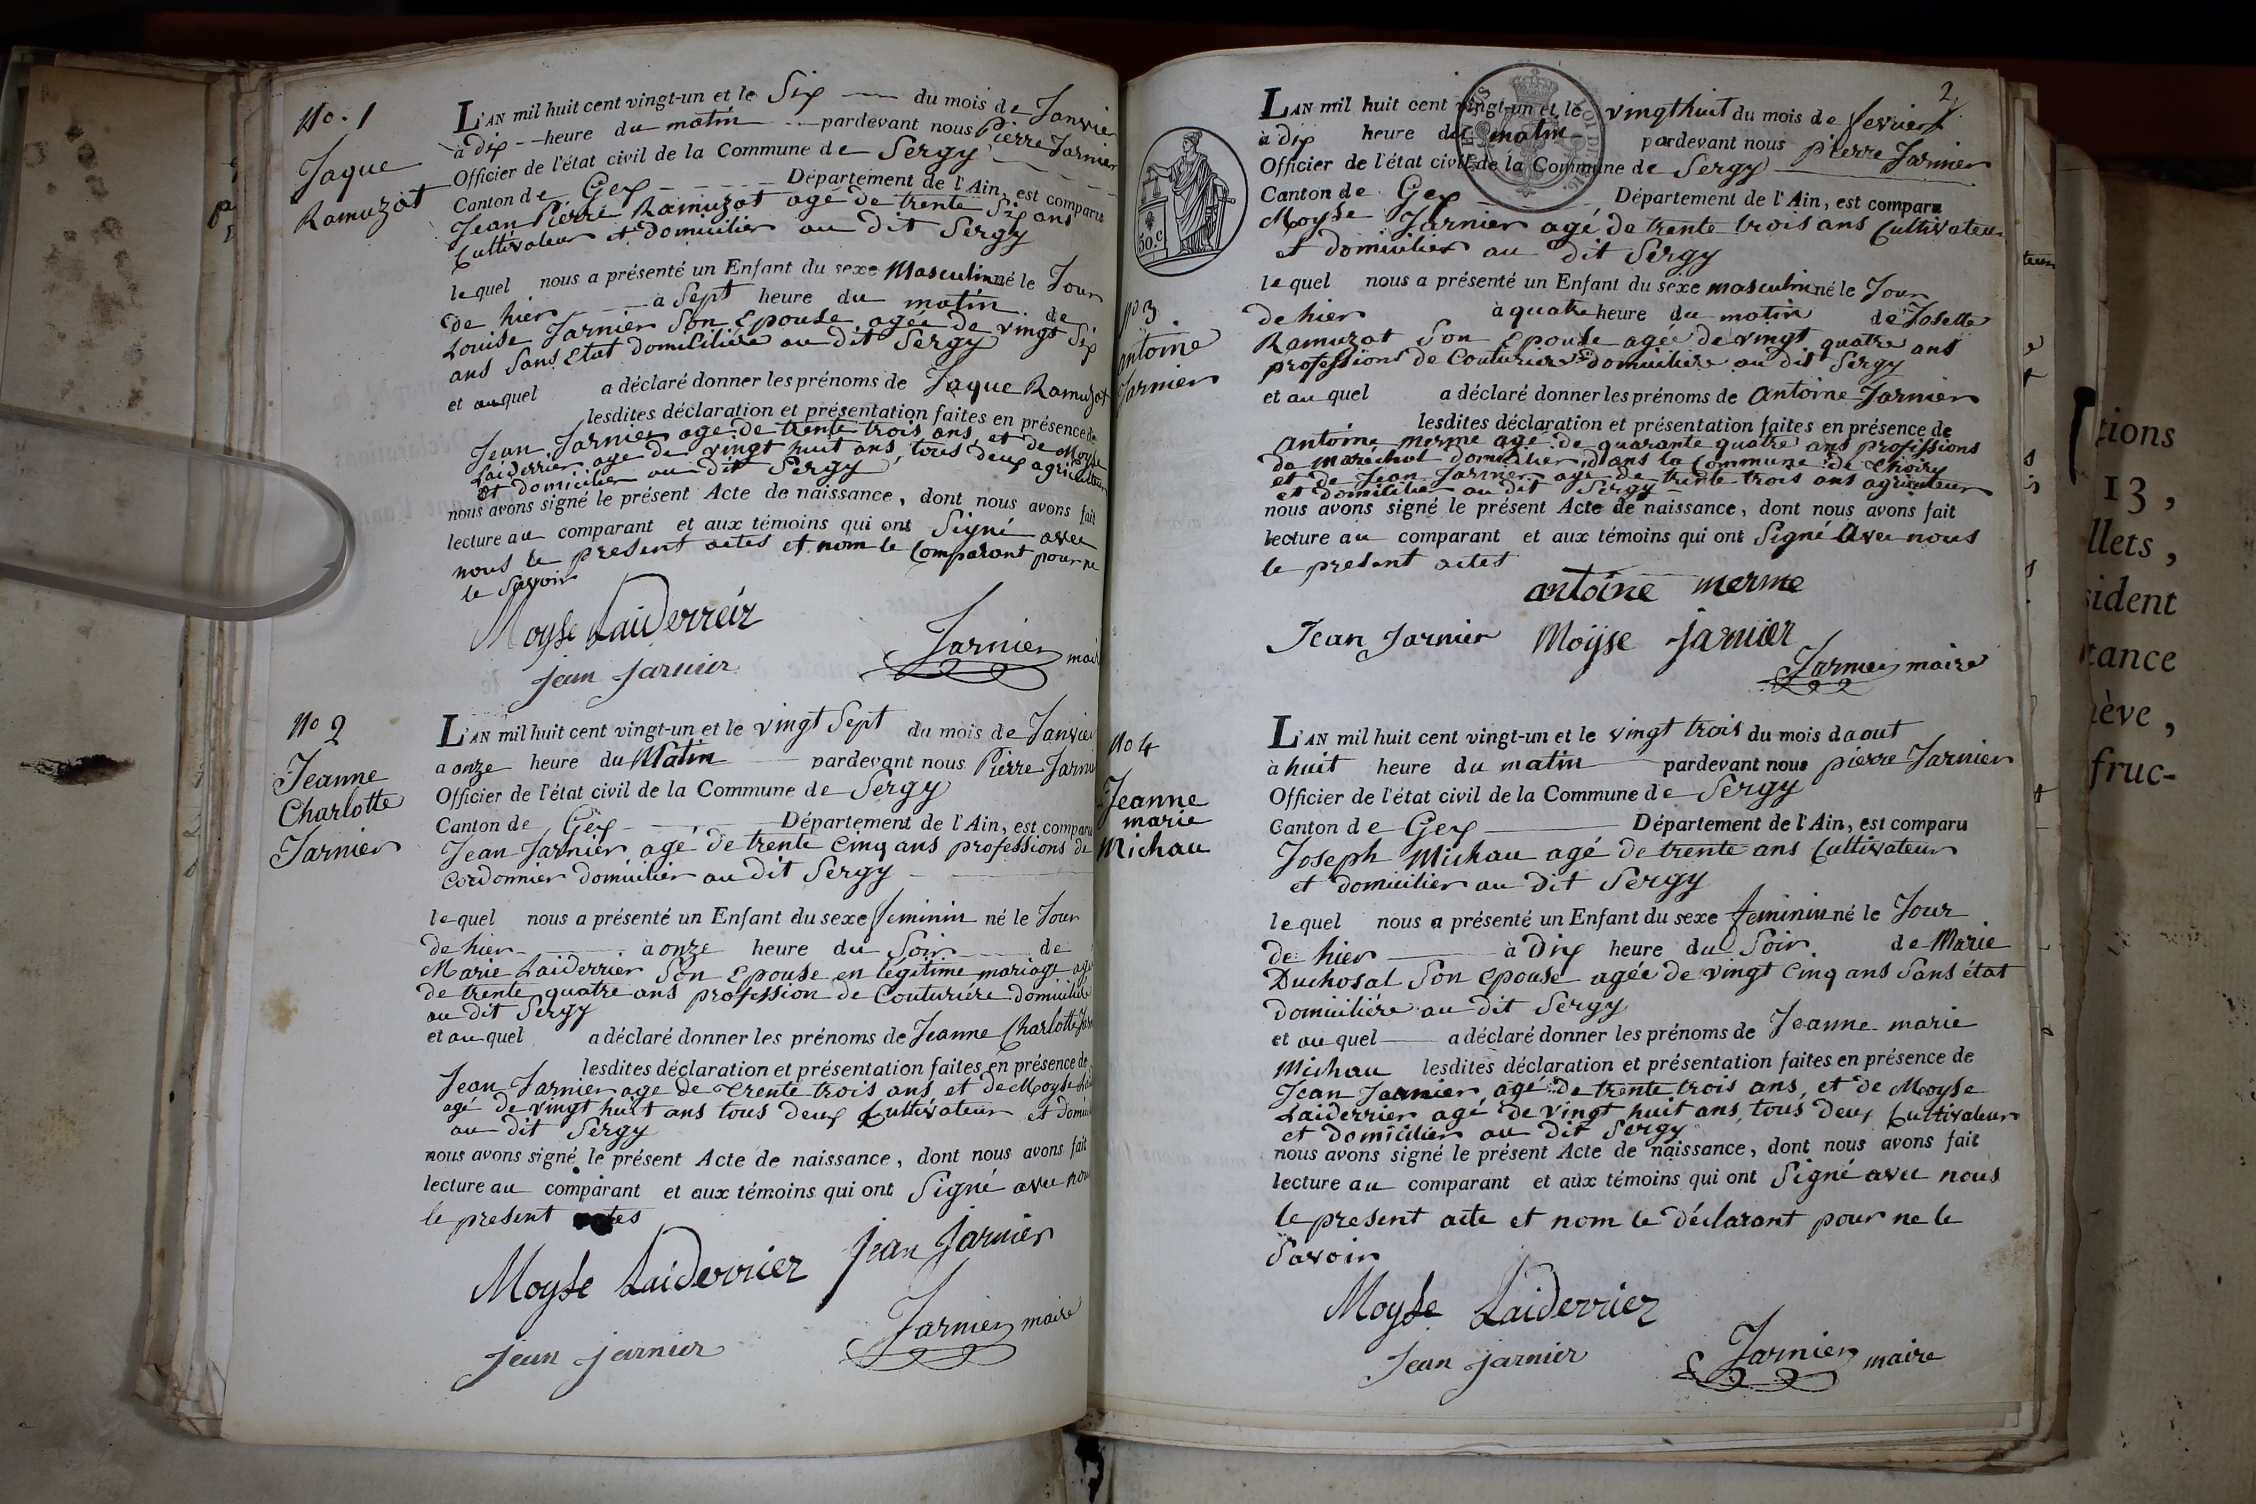 No. 1
Jaque
Ramuzat
L'AN mil huit cent vingt-un et le Six du mois de Janvier
à dix heure du matin pardevant nous Pierre Jarnier
Officier de l'état civil de la Commune de Sergy
Canton de Gex Département de l'Ain, est comparu
Jean Pierre Ramuzat agé de trente Six ans
Cultivateur et domicilier au dit Sergy
lequel nous a présenté un Enfant du sexe Masculin né le Jour
de hier à Sept heure du matin de
Louise Jarnier Son Epouse agée de vingt Six
ans Sans Etat domicilière au dit Sergy
et auquel a déclaré donner les prénoms de Jaque Ramuzat
lesdites déclaration et présentation faites en présence de
Jean Jarnier age de trente trois ans, et de Moyse
Laiderrier age de vingt huit ans, tous deux agriculteur
et domicilier au dit Sergy
nous avons signé le présent Acte de naissance, dont nous avons fait
lecture au comparant et aux témoins qui ont Signé avec
nous le present actes et nom le Comparant pour ne
le Savoir
Moyse Laiderreir
jean jarnier Jarnier maire
No 2
Jeanne
Charlotte
Jarnier
L'AN mil huit cent vingt-un et le vingt Sept du mois de Janvier
a onze heure du Matin pardevant nous Pierre Jarnier
Officier de l'état civil de la Commune de Sergy
Canton de Gex Département de l'Ain, est comparu
Jean Jarnier agé de trente Cinq ans professions de
Cordonnier domicilier au dit Sergy
lequel nous a présenté un Enfant du sexe feminin né le Jour
de hier à onze heure du Soir de
Marie Laiderrier Son Epouse en légitime mariage agé
de trente quatre ans profession de Couturiére domicilière
au dit Sergy
et au quel a déclaré donner les prénoms de Jeanne Charlotte
lesdites déclaration et présentation faites en présence de
Jean Jarnier age de trente trois ans et de Moyse
agé de vingt huit ans tous deux Cultivateur et
au dit Sergy
nous avons signé le présent Acte de naissance, dont nous avons fait
lecture au comparant et aux témoins qui ont Signé avec nous
le present actes
Moyse Laiderrier jean jarnier
jean jarnier Jarnier maire
2
L'AN mil huit cent vingt-un et le vingthuit du mois de fevrier
à dix heure du matin pardevant nous pierre Jarnier
Officier de l'état civil de la Commune de Sergy
Canton de Gex Département de l'Ain, est comparu
Moyse Jarnier agé de trente trois ans Cultivateur
et domicilier au dit Sergy
50 c
no 3
antoine
Jarnier
lequel nous a présenté un Enfant du sexe masculin né le Jour
de hier à quatre heure du matin de Josette
Ramuzat Son Epouse agée de vingt quatre ans
professions de Couturiere domicilière au dit Sergy
et au quel a déclaré donner les prénoms de Antoine Jarnier
lesdites déclaration et présentation faites en présence de
Antoine merme agé de quarante quatre ans professions
de Maréchal domicilier dans la Commune de thoiry
et de Jean Jarnier age de trente trois ans agriculteur
et domicilier au dit Sergy
nous avons signé le présent Acte de naissance, dont nous avons fait
lecture au comparant et aux témoins qui ont Signé Avec nous
le present actes
antoine merme
Jean Jarnier Moÿse jarnier
Jarnier maire
No 4
Jeanne
marie
Michau
L'AN mil huit cent vingt-un et le vingt trois du mois daout
à huit heure du matin pardevant nous pierre Jarnier
Officier de l'état civil de la Commune de Sergy
Canton de Gex Département de l'Ain, est comparu
Joseph Michau agé de trente ans Cultivateur
et domicilier au dit Sergy
lequel nous a présenté un Enfant du sexe feminin né le Jour
de hier à Dix heure du Soir de Marie
Duchosal Son epouse agée de vingt Cinq ans Sans état
domiciliére au dit Sergy
et au quel a déclaré donner les prénoms de Jeanne marie
Michau lesdites déclaration et présentation faites en présence de
Jean Jarnier agé de trente trois ans, et de Moyse
Laiderrier agé de vingt huit ans, tous deux Cultivateur
et domicilier au dit Sergy
nous avons signé le présent Acte de naissance, dont nous avons fait
lecture au comparant et aux témoins qui ont Signé avec nous
le present acte et nom le déclarant pour ne le
Savoir
Moyse Laiderrier
jean jarnier Jarnier maire
tions
13,
llets,
sident
tance
ève,
fruc-